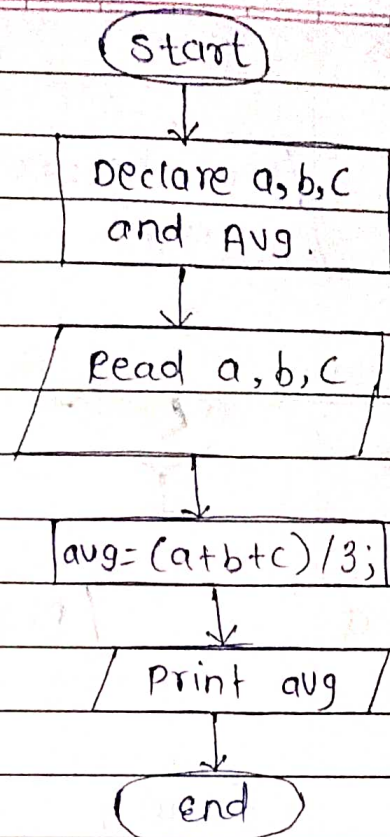 Start
Declare a, b, c
and Avg.
Read a, b, c
avg= (a+b+c) /3;
Print avg
End